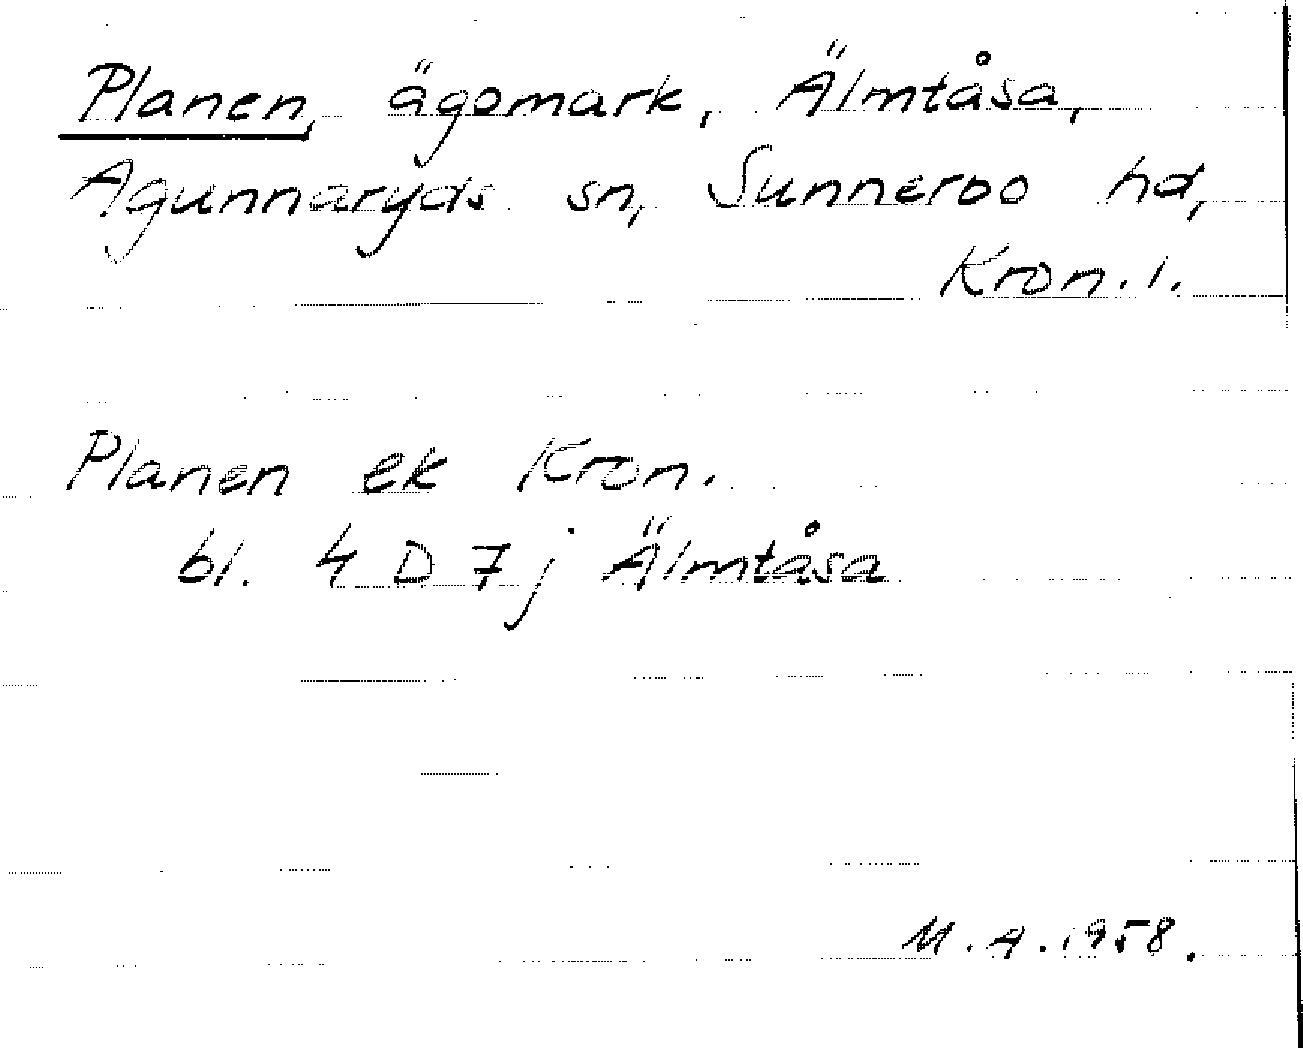 Planen, ägomark, Älmtåsa,
Agunnaryds sn, Sunnerbo hd,
Kron. l.
Planen ek Kron.
bl. 4 D 7 j Älmtåsa
M. A. 1958.